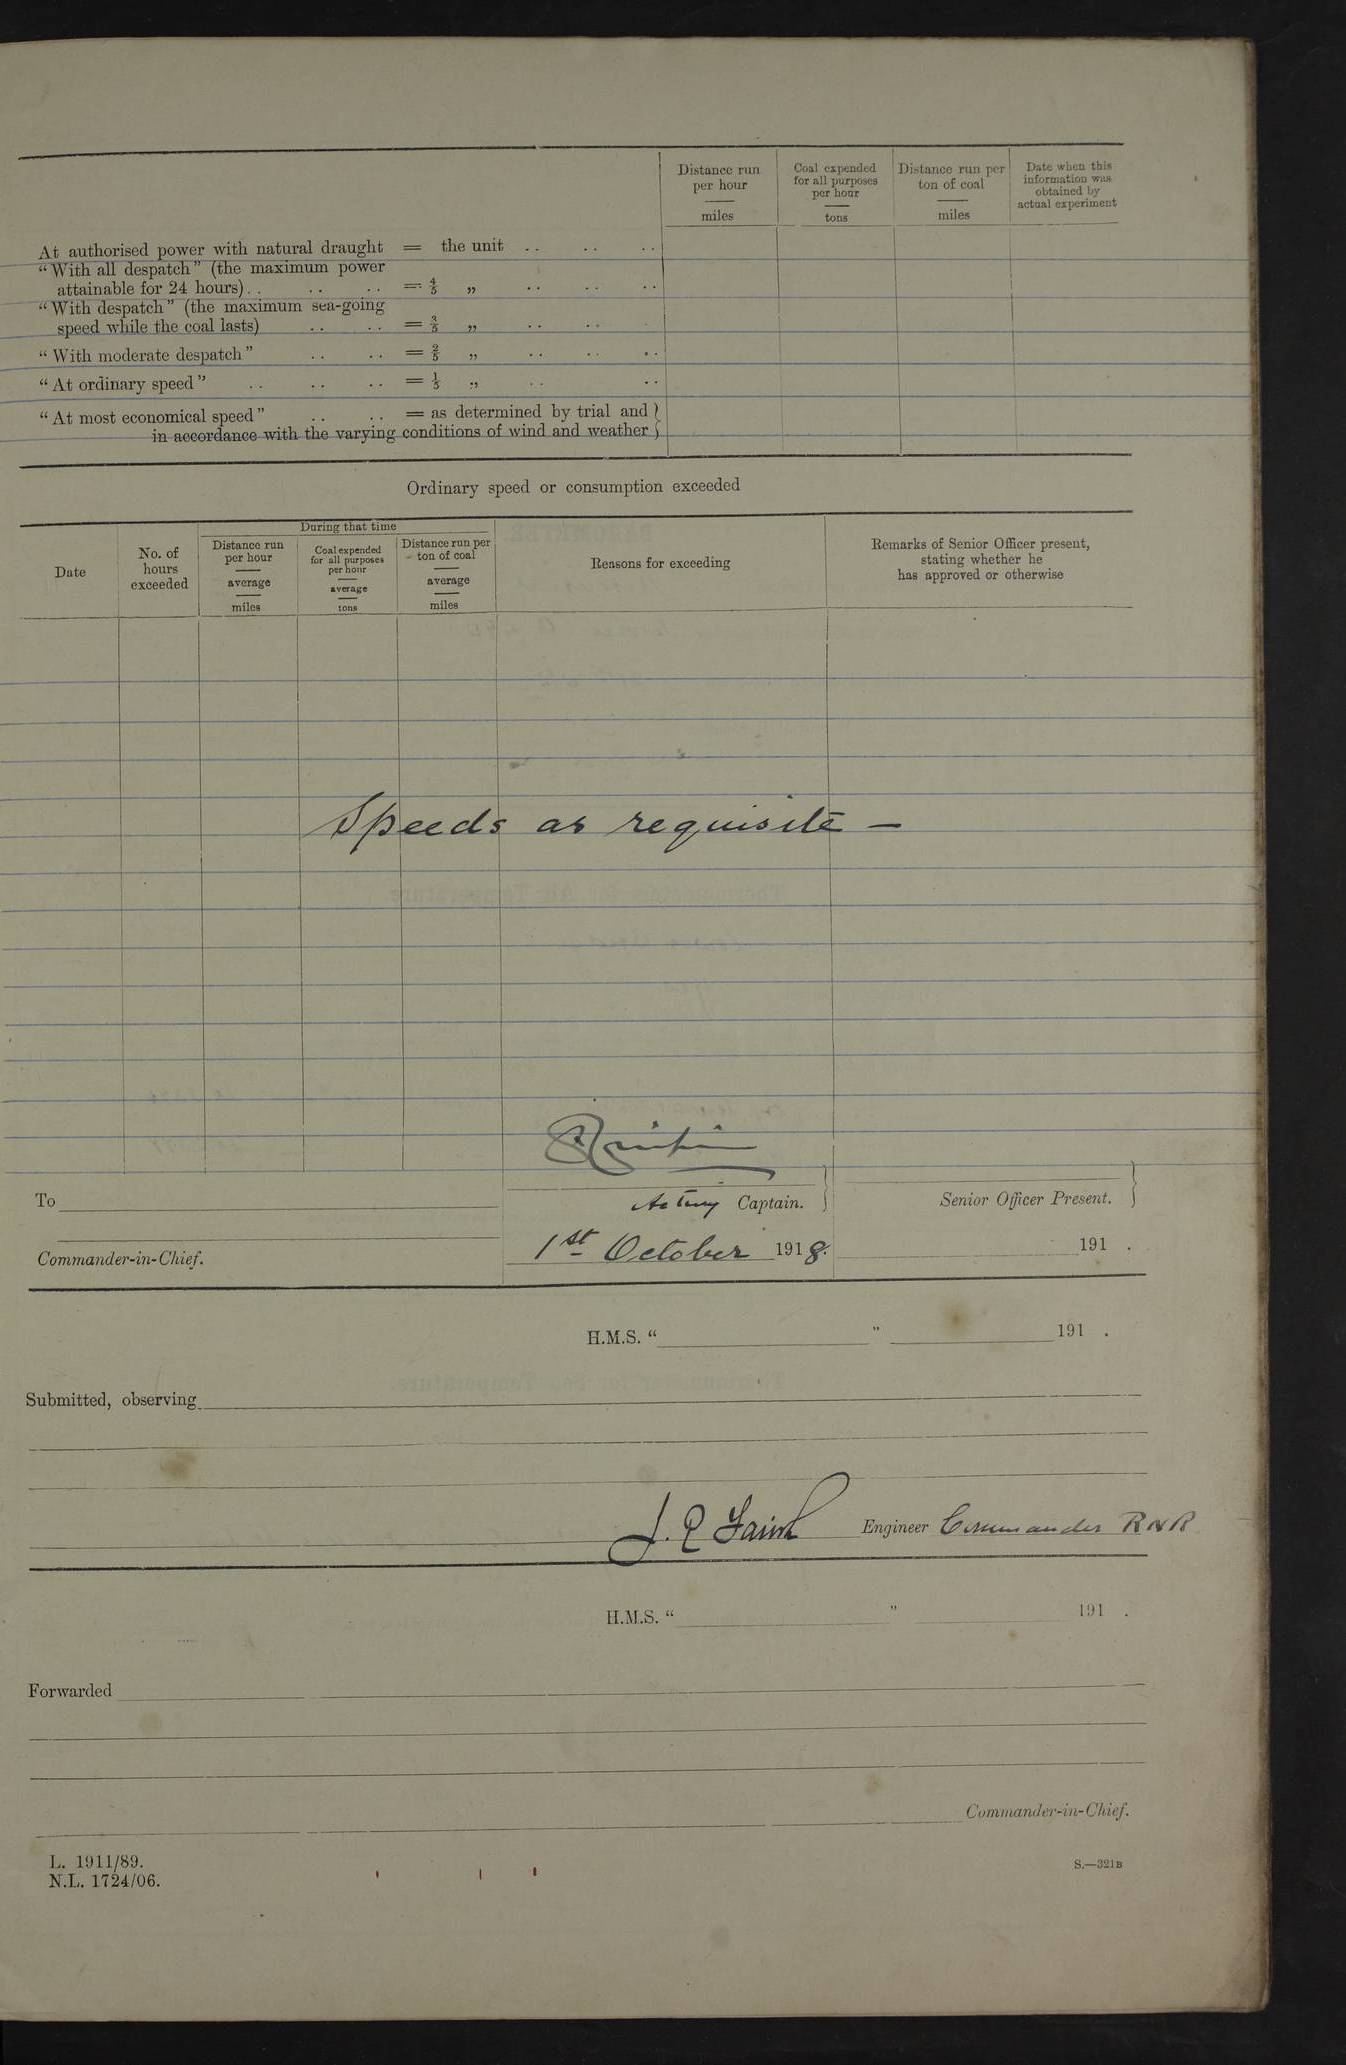 Distance run per hour miles
Coal expended for all purposes per hour tons
Distance run per ton of coal miles
Date when this information was obtained by actual experiment
At authorised power with natural draught = the unit .. .. ..
“With all despatch” (the maximum power
attainable for 24 hours) .. .. .. = 4/5 „ .. .. ..
“With despatch” (the maximum sea-going
speed while the coal lasts) .. .. = 3/5 „ .. ..
“With moderate despatch” .. .. = 2/5 „ .. .. ..
“At ordinary speed” .. .. .. = 1/5 „ .. ..
“At most economical speed” .. .. = as determined by trial and
in accordance with the varying conditions of wind and weather
Ordinary speed or consumption exceeded
Date
No. of hours exceeded
During that time
Distance run per hour average miles
Coal expended for all purposes per hour average tons
Distance run per ton of coal average miles
Reasons for exceeding
Remarks of Senior Officer present, stating whether he has approved or otherwise
Speeds as requisite —
To
Acting Captain.
Senior Officer Present.
Commander-in-Chief.
1st October 1918.
191 .
H.M.S. “ ” 191 .
Submitted, observing
Engineer Commander RNR
H.M.S. “ ” 191 .
Forwarded
Commander-in-Chief.
L. 1911/89.
N.L. 1724/06.
S.—321B